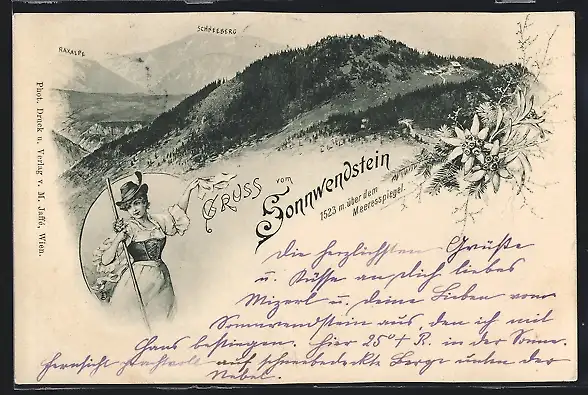 SCHNEEBERG
RAXALPE
Phot. Druck u. Verlag v. M. Jaffé, Wien.
GRUSS vom Sonnwendstein
1523 m. über dem
Meeresspiegel.
Die herzlichsten Grüße
u. Küsse an dich liebes
Mizerl u. deine Lieben vom
Sonnwendstein aus, den ich mit
Hans bestiegen. Hier 25°+ R. in der Sonne.
Fernsicht prachtvoll auf schneebedeckte Berge unten der
Nebel.